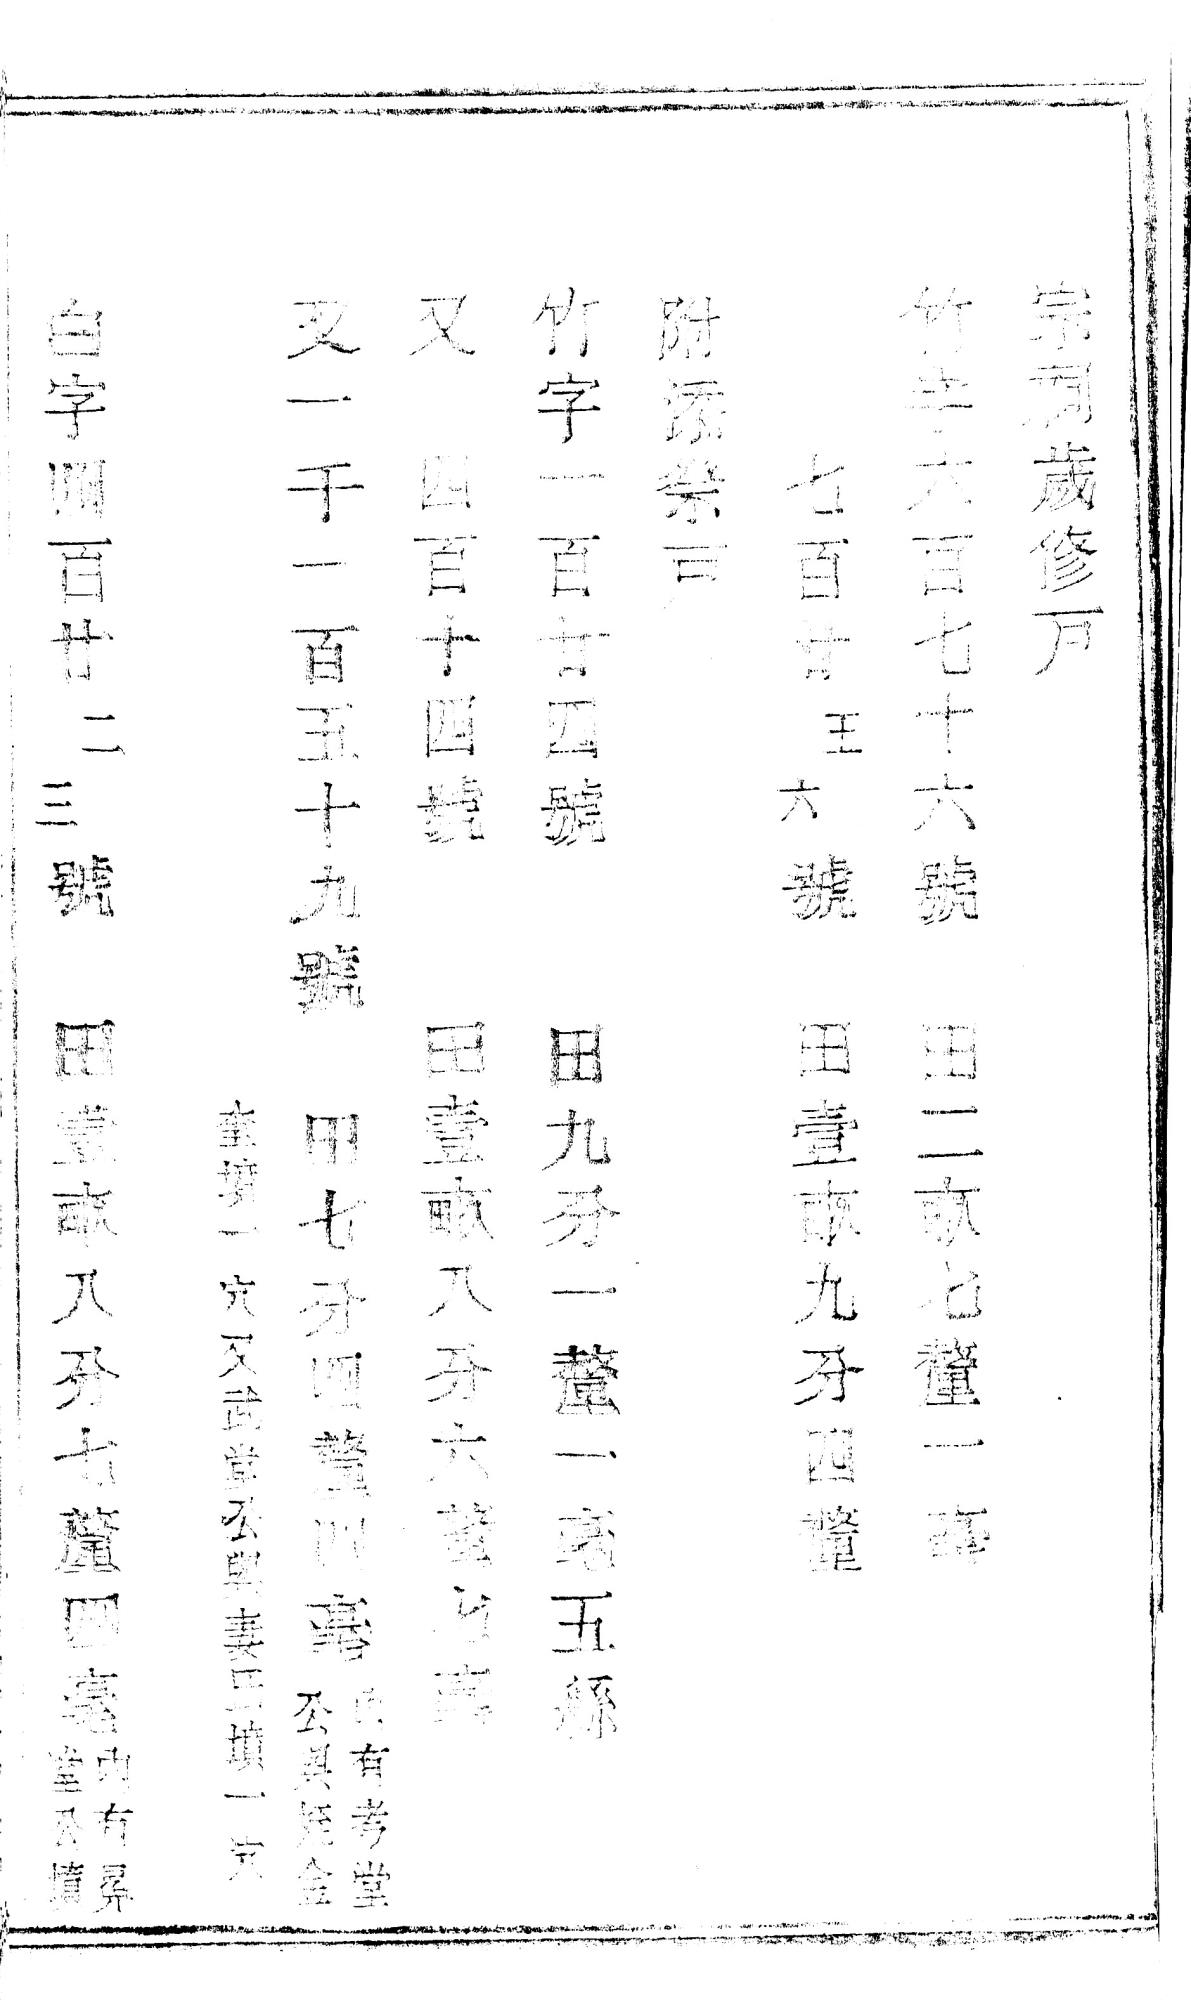 宗祠歲修戸
竹字六百七十六號 田二畝七釐一毫
七百廿五六號 田壹畝九分四釐
附添祭戸
竹字一百廿四號 田九分一釐一毫五絲
又 四百十四號 田壹畝八分六釐七毫
又一千一百五十九號 田七分四釐四毫 內有考堂公與姪金
童墳一穴又武堂公與妻王墳一穴
白字四百廿二三號 田壹畝八分七釐四毫 內有昇堂公墳